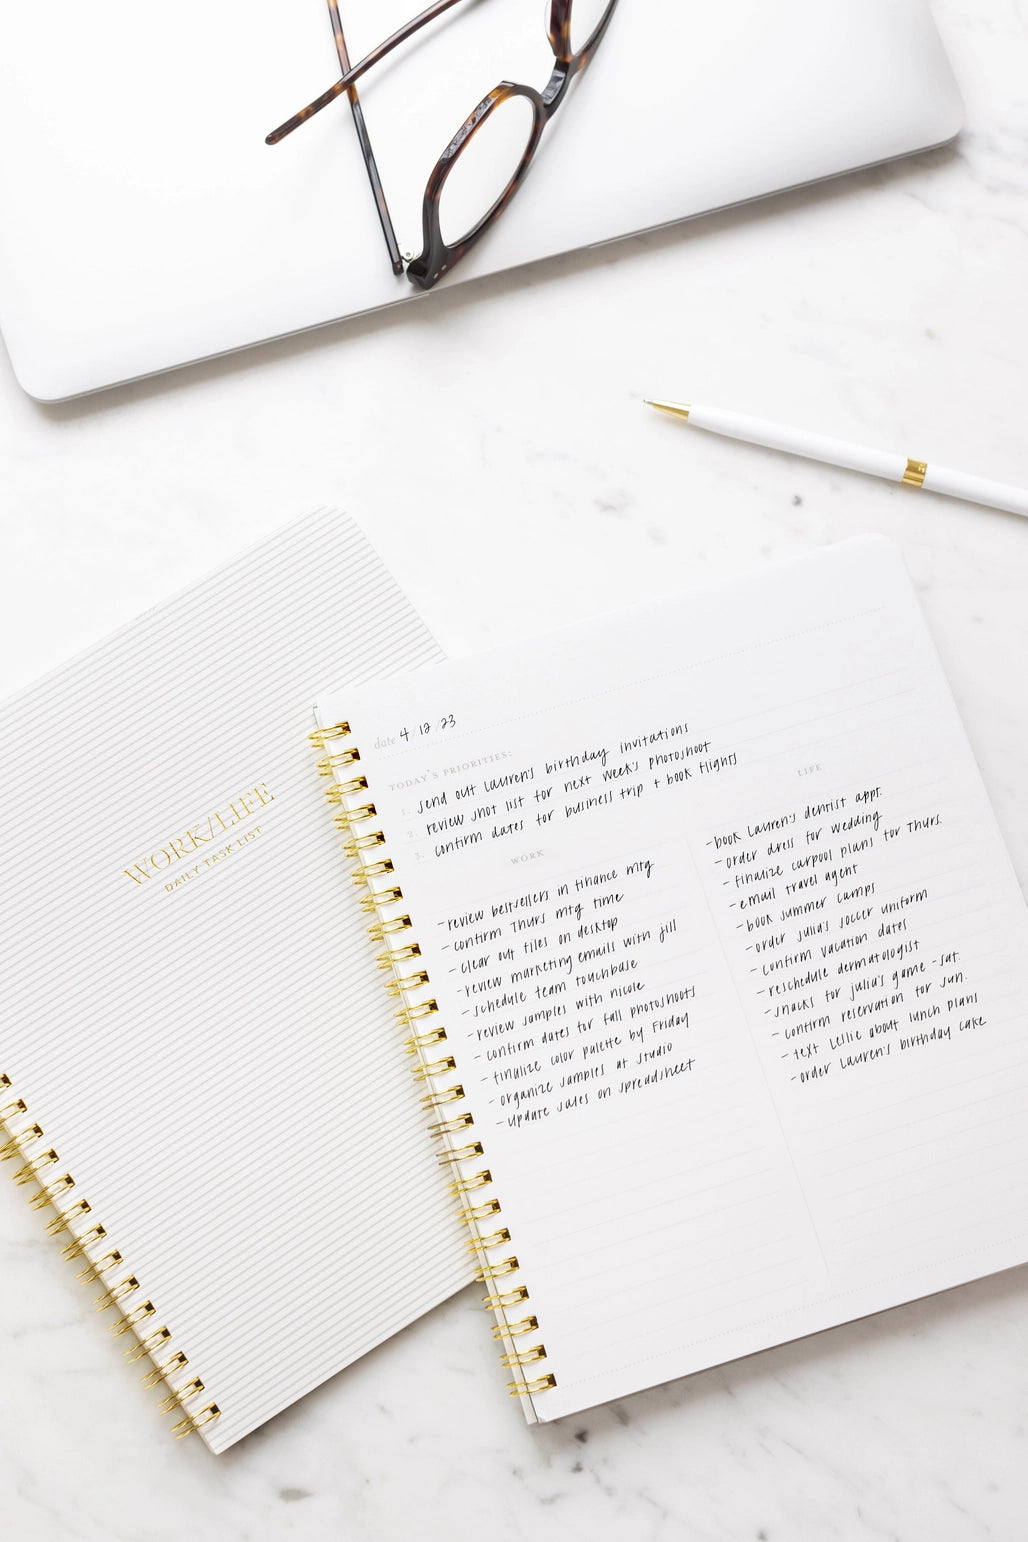 WORK/LIFE
DAILY TASK LIST
date 4/12/23
TODAY'S PRIORITIES:
1. send out Lauren's birthday invitations
2. review shot list for next week's photoshoot
3. confirm dates for business trip + book flights
WORK
-review bestsellers in finance mtg
-confirm Thurs mtg time
-clear out files on desktop
-review marketing emails with jill
-schedule team touchbase
-review samples with nicole
-confirm dates for fall photoshoots
-finalize color palette by Friday
-organize samples at studio
-update sales on spreadsheet
LIFE
-book Lauren's dentist appt.
-order dress for wedding
-finalize carpool plans for Thurs.
-email travel agent
-book summer camps
-order julia's soccer uniform
-confirm vacation dates
-reschedule dermatologist
-snacks for julia's game -sat.
-confirm reservation for sun.
-text Leslie about lunch plans
-order Lauren's birthday cake